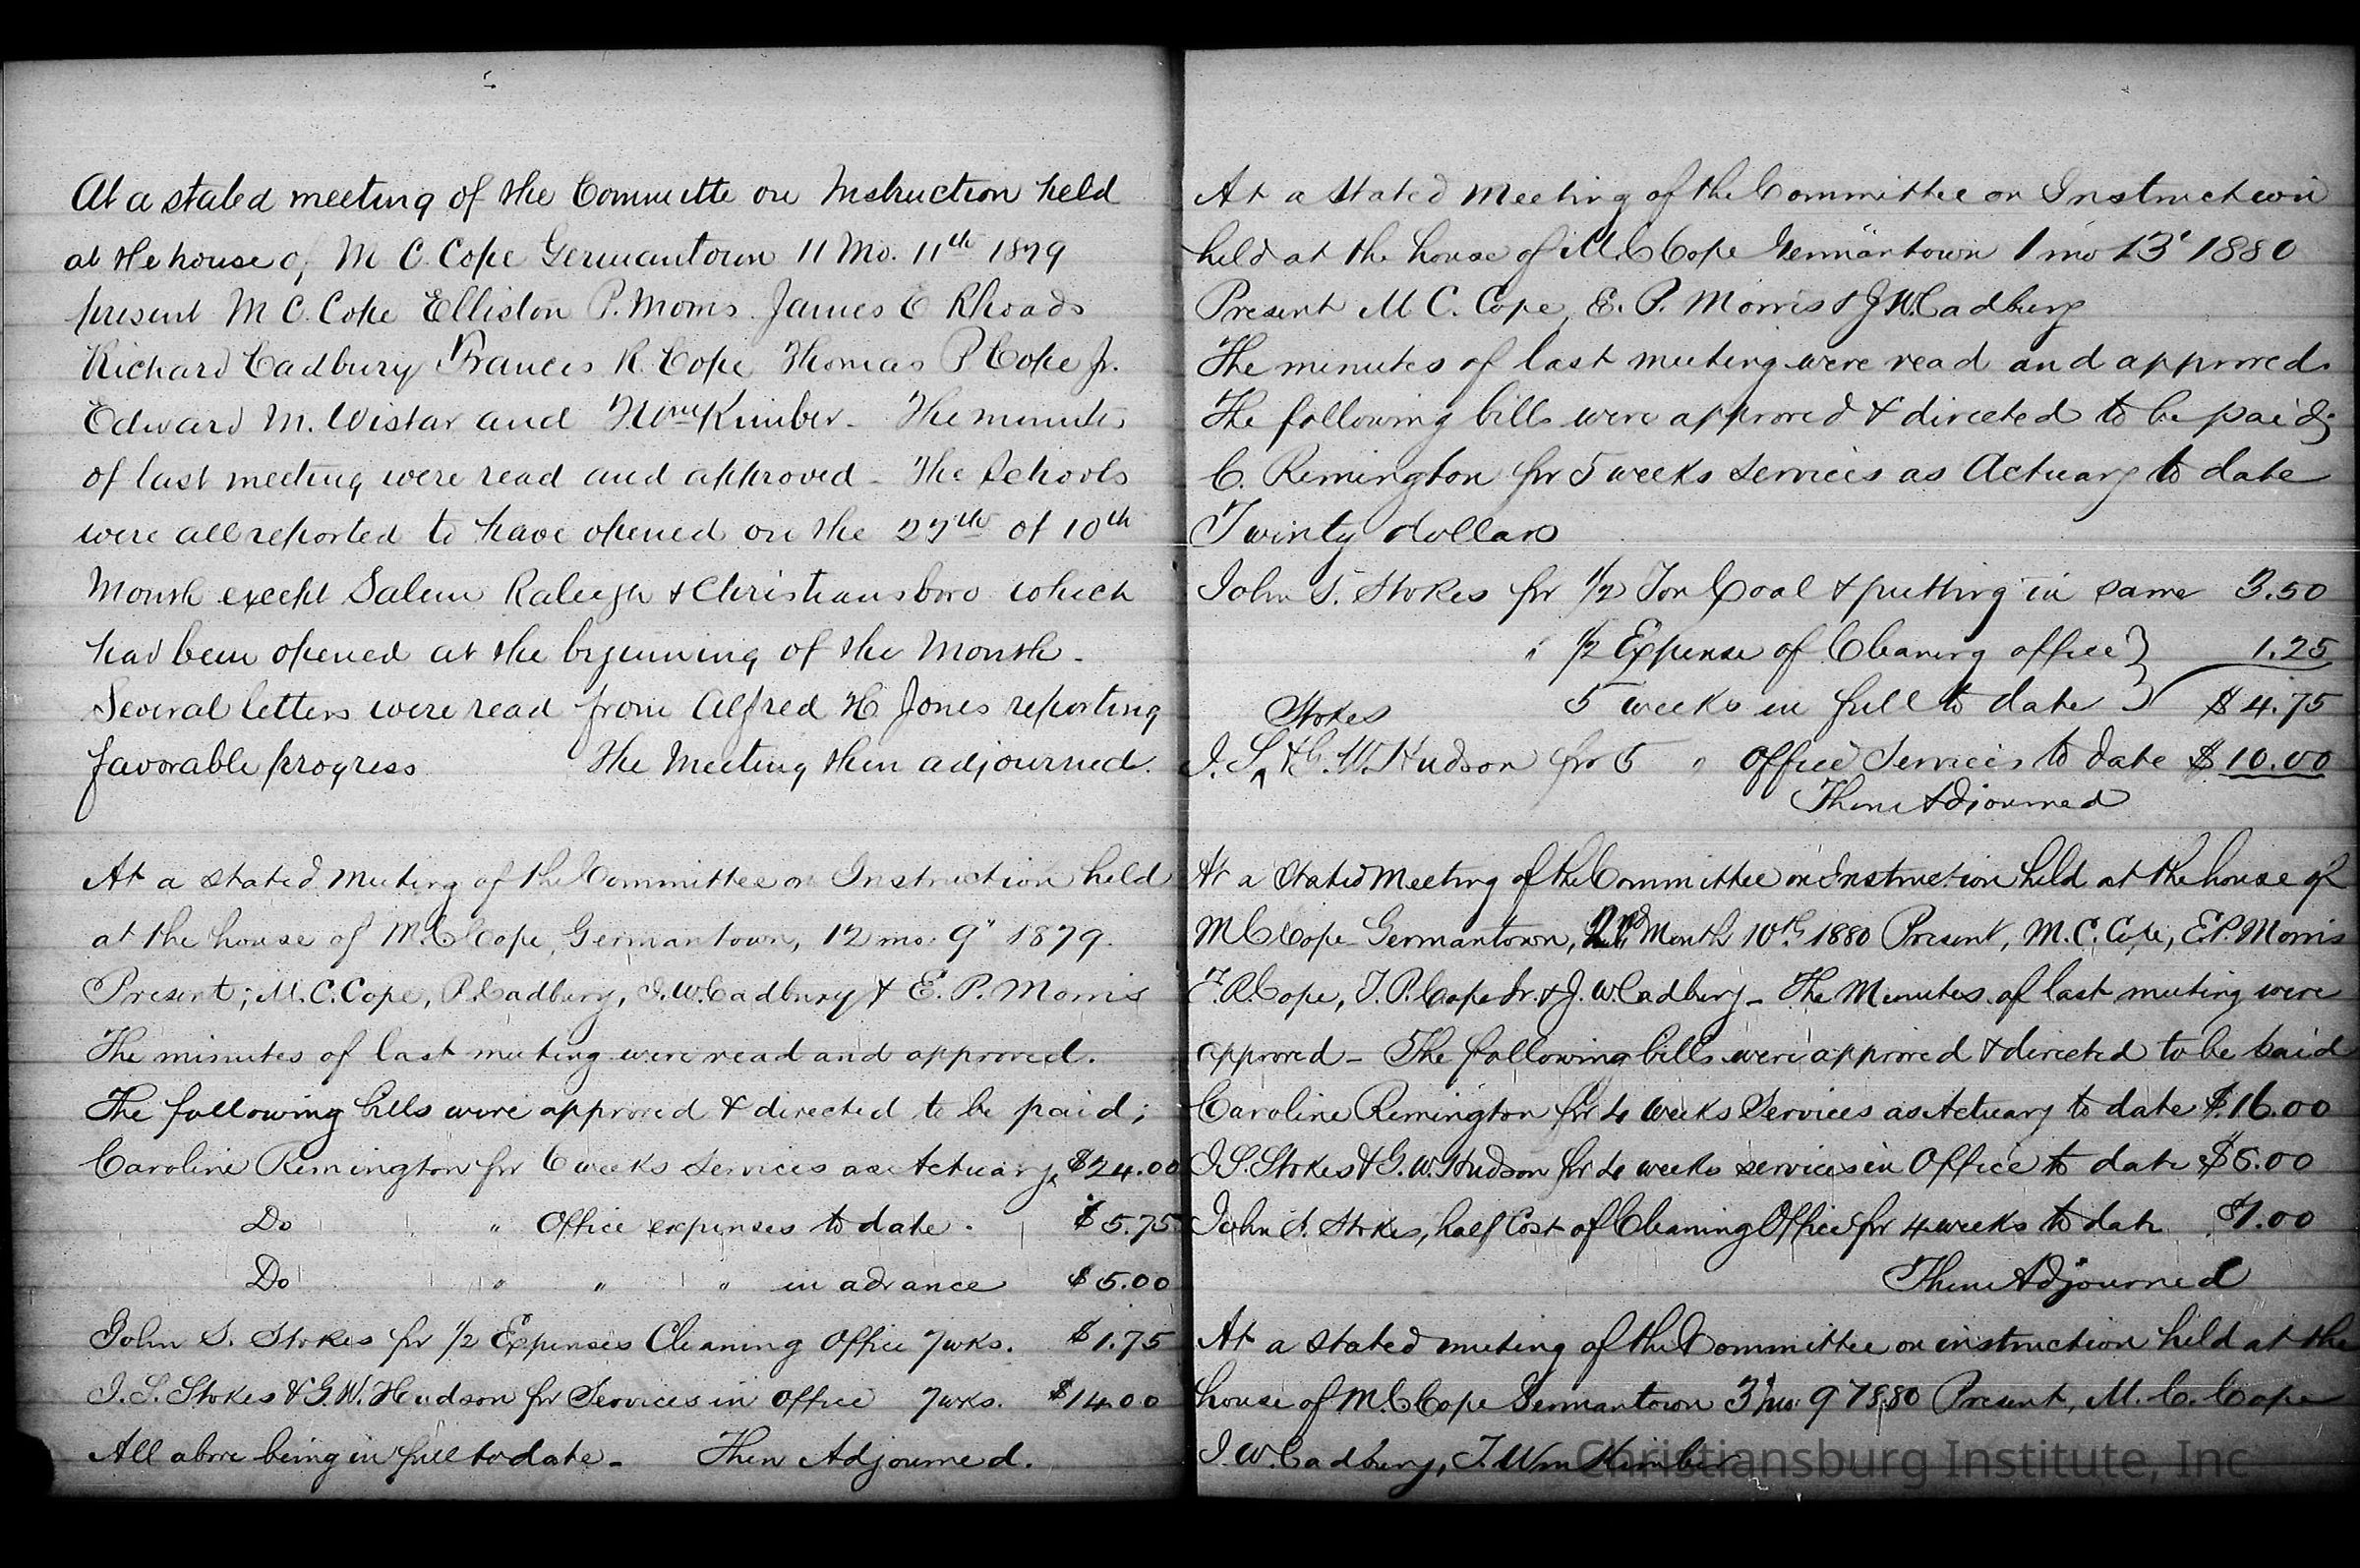 At a stated meeting of the Committe on Instruction held
at the house of M C. Cope Germantown 11 Mo. 11th 1879
present M C. Cope Elliston P. Morris James E Rhoads
Richard Cadbury Francis R. Cope Thomas P Cope Jr.
Edward M. Wistar and T Wm Kimber - The minutes
of last meeting were read and approved - The Schools
were all reported to have opened on the 27th of 10th
Month except Salem Raleigh & Christiansboro which
had been opened at the beginning of the Month -
Several letters were read from Alfred H Jones reporting
favorable progress The Meeting then adjourned.
At a stated meeting of the Committee on Instruction held
at the house of M. C Cope, Germantown, 12 mo. 9" 1879.
Present; M. C. Cope, R. Cadbury, J. W. Cadbury & E. P. Morris
The minutes of last meeting were read and approved.
The following bills were approved & directed to be paid;
Caroline Remington for 6 weeks services as Actuary, $24.00
Do " Office expenses to date. $5.75
Do " " " in advance $5.00
John S. Stokes for 1/2 Expenses Cleaning Office 7 wks. $1.75
J. S. Stokes & G. W. Hudson for Services in Office 7 wks. $14.00
All above being in full to date - Then Adjourned.
At a Stated Meeting of the Committee on Instruction
held at the house of M. C Cope Germantown 1 mo 13" 1880
Present M C. Cope, E. P. Morris & J W. Cadbury
The minutes of last meeting were read and approved.
The following bills were approved & directed to be paid;
C. Remington for 5 weeks services as Actuary to date
Twenty dollars
John S. Stokes for 1/2 Ton Coal & putting in same 3.50
" 1/2 Expense of Cleaning office } 1.25
5 weeks in full to date } $4.75
Stokes
J. S. & G. W. Hudson for 5 " Office Services to date $10.00
Then Adjourned
At a Stated Meeting of the Committee on Instruction held at the house of
M C Cope Germantown, 2nd Month 10th 1880 Present, M. C. Cope, E. P. Morris
F. R. Cope, T. P. Cope Jr. & J. W. Cadbury - The Minutes of last meeting were
approved - The following bills were approved & directed to be paid
Caroline Remington for 4 weeks Services as Actuary to date $16.00
J. S. Stokes & G. W. Hudson for 4 weeks services in Office to date $8.00
John S. Stokes, half Cost of Cleaning Office for 4 weeks to date $1.00
Then Adjourned
At a Stated meeting of the Committee on instruction held at the
house of M. C Cope Germantown 3 mo. 9 1880 Present, M. C. Cope
J. W. Cadbury, T. Wm Kimber
Christiansburg Institute, Inc